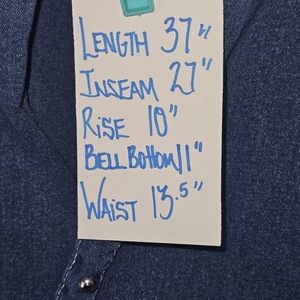 LENGTH 37"
INSEAM 27"
RISE 10"
BELL BOTTOM 11"
WAIST 13.5"